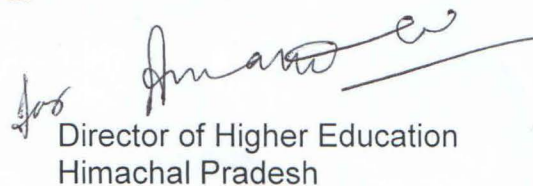 for
Director of Higher Education
Himachal Pradesh